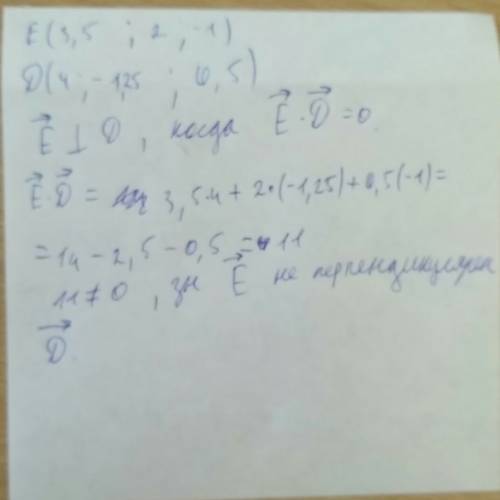 E(3,5 ; 2 ; -1)
D(4 ; -1,25 ; 0,5)
E ⊥ D, когда E · D = 0.
E · D = 3,5·4 + 2·(-1,25) + 0,5(-1) =
= 14 - 2,5 - 0,5 = 11
11 ≠ 0, зн E не перпендикулярен
D.